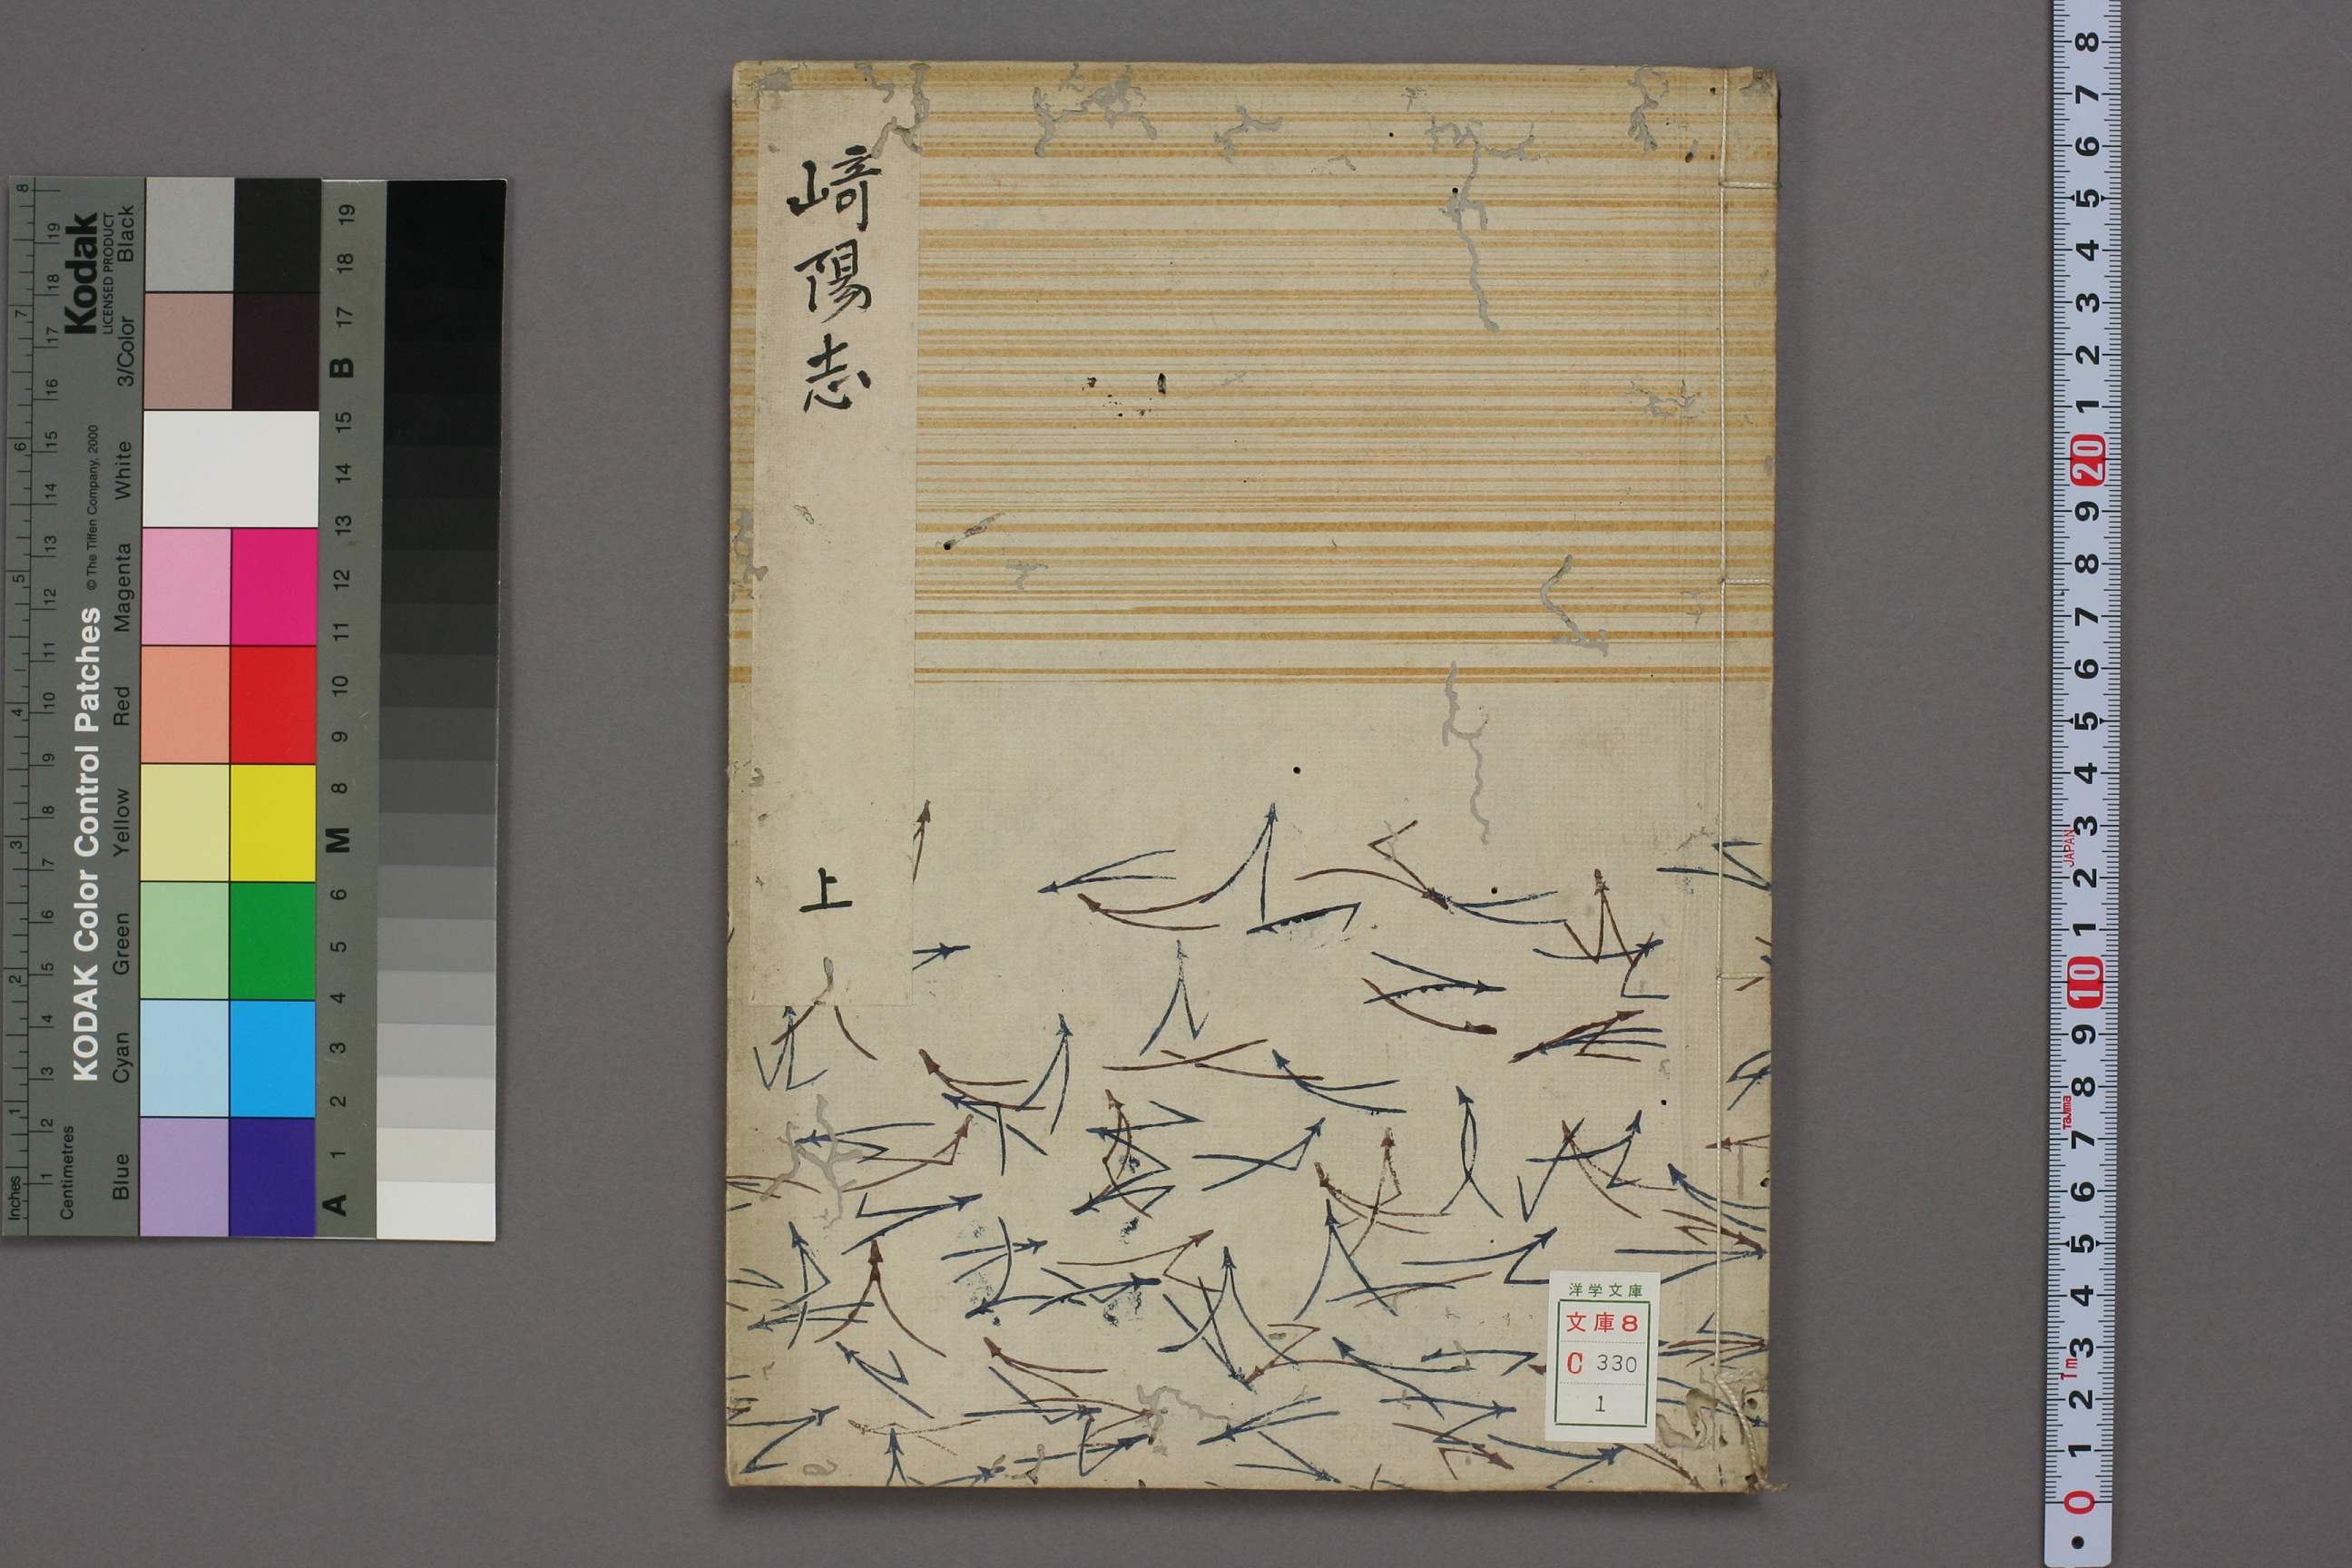 崎陽志
上
洋学文庫
文庫8
C 330
1
Kodak
LICENSED PRODUCT
KODAK Color Control Patches
© The Tiffen Company, 2000
Blue
Cyan
Green
Yellow
Red
Magenta
White
3/Color
Black
Inches
1
2
3
4
5
6
7
8
Centimetres
1
2
3
4
5
6
7
8
9
10
11
12
13
14
15
16
17
18
19
A
1
2
3
4
5
6
M
8
9
10
11
12
13
14
15
B
17
18
19
8
7
6
5
4
3
2
1
20
9
8
7
6
5
4
3
2
1
10
9
8
7
6
5
4
3
2
1
0
JAPAN
Tajima
1m